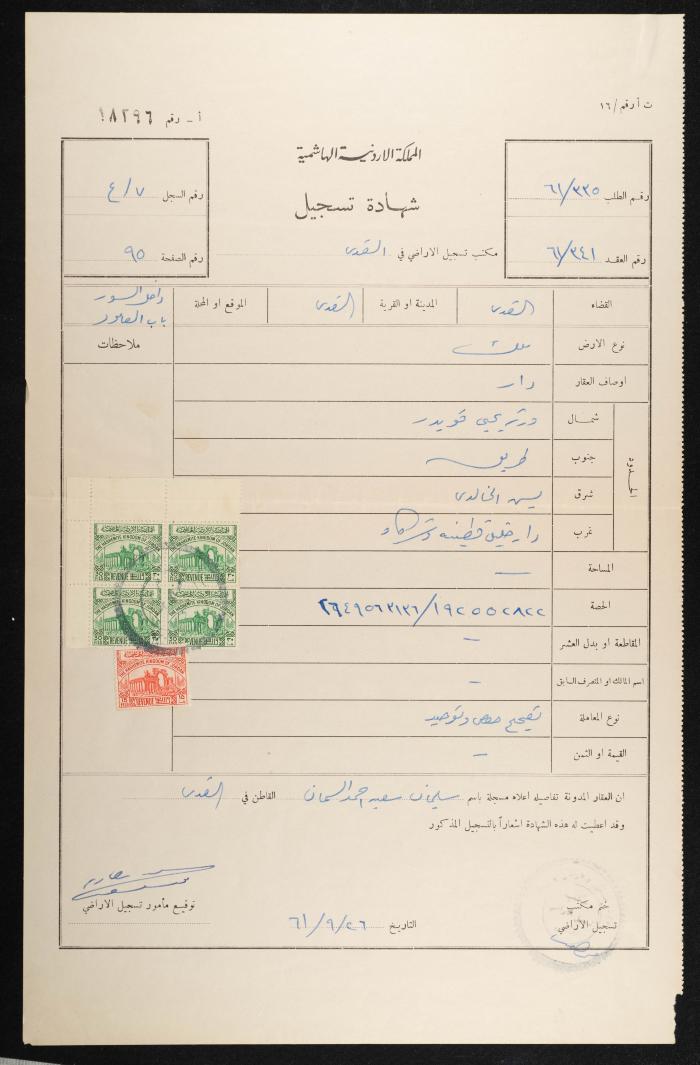 ت أ رقم /١٦
أ - رقم ١٨٢٩٦
المملكة الاردنية الهاشمية
شهادة تسجيل
مكتب تسجيل الاراضي في القدس
رقم الطلب ٦١/٣٣٥
رقم العقد ٦١/٣٤١
رقم السجل ٤/٧
رقم الصفحة ٩٥
القضاء القدس المدينة او القرية القدس الموقع او المحلة داخل السور
باب العامود
ملاحظات
نوع الارض ملك
اوصاف العقار دار
الحدود
شمال ورثة يحيى قويدر
جنوب طريق
شرق يسن الخالدي
غرب دار خليل قطينه وشركاه
المساحة —
الحصة ١٩٢٥٥٢٨٢٢/٢٦٤٩٥٦٣١٣٦
المقاطعة او بدل العشر —
اسم المالك او المتصرف السابق —
نوع المعاملة تصحيح حصص وتوحيد
القيمة او الثمن —
THE HASHEMITE KINGDOM OF JORDAN
REVENUE
ان العقار المدونة تفاصيله اعلاه مسجلة باسم سليمان سعيد احمد السمان القاطن في القدس
وقد اعطيت له هذه الشهادة اشعاراً بالتسجيل المذكور
ختم مكتب
تسجيل الاراضي
التاريخ ٦١/٩/٢٦
توقيع مأمور تسجيل الاراضي